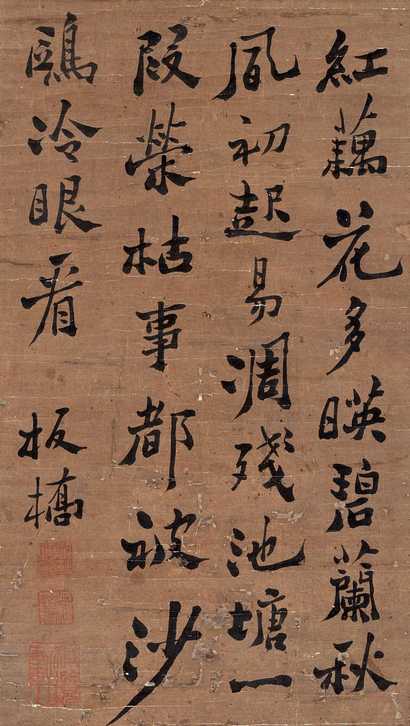 紅藕花多暎碧蘭秋
風初起易凋殘池塘一
段榮枯事都被沙
鷗冷眼看
板橋